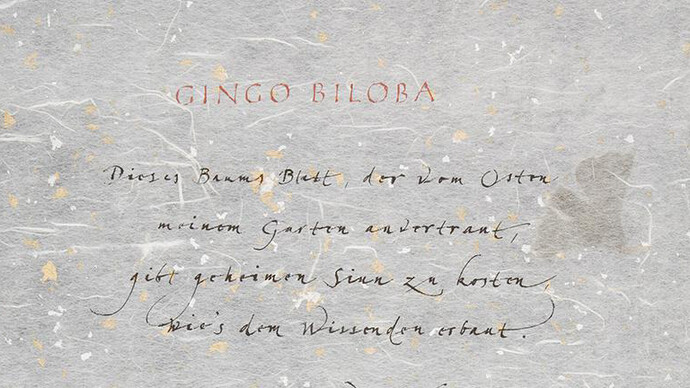 GINGO BILOBA
Dieses Baums Blatt, der vom Osten
meinem Garten anvertraut,
gibt geheimen Sinn zu kosten,
wie's dem Wissenden erbaut.